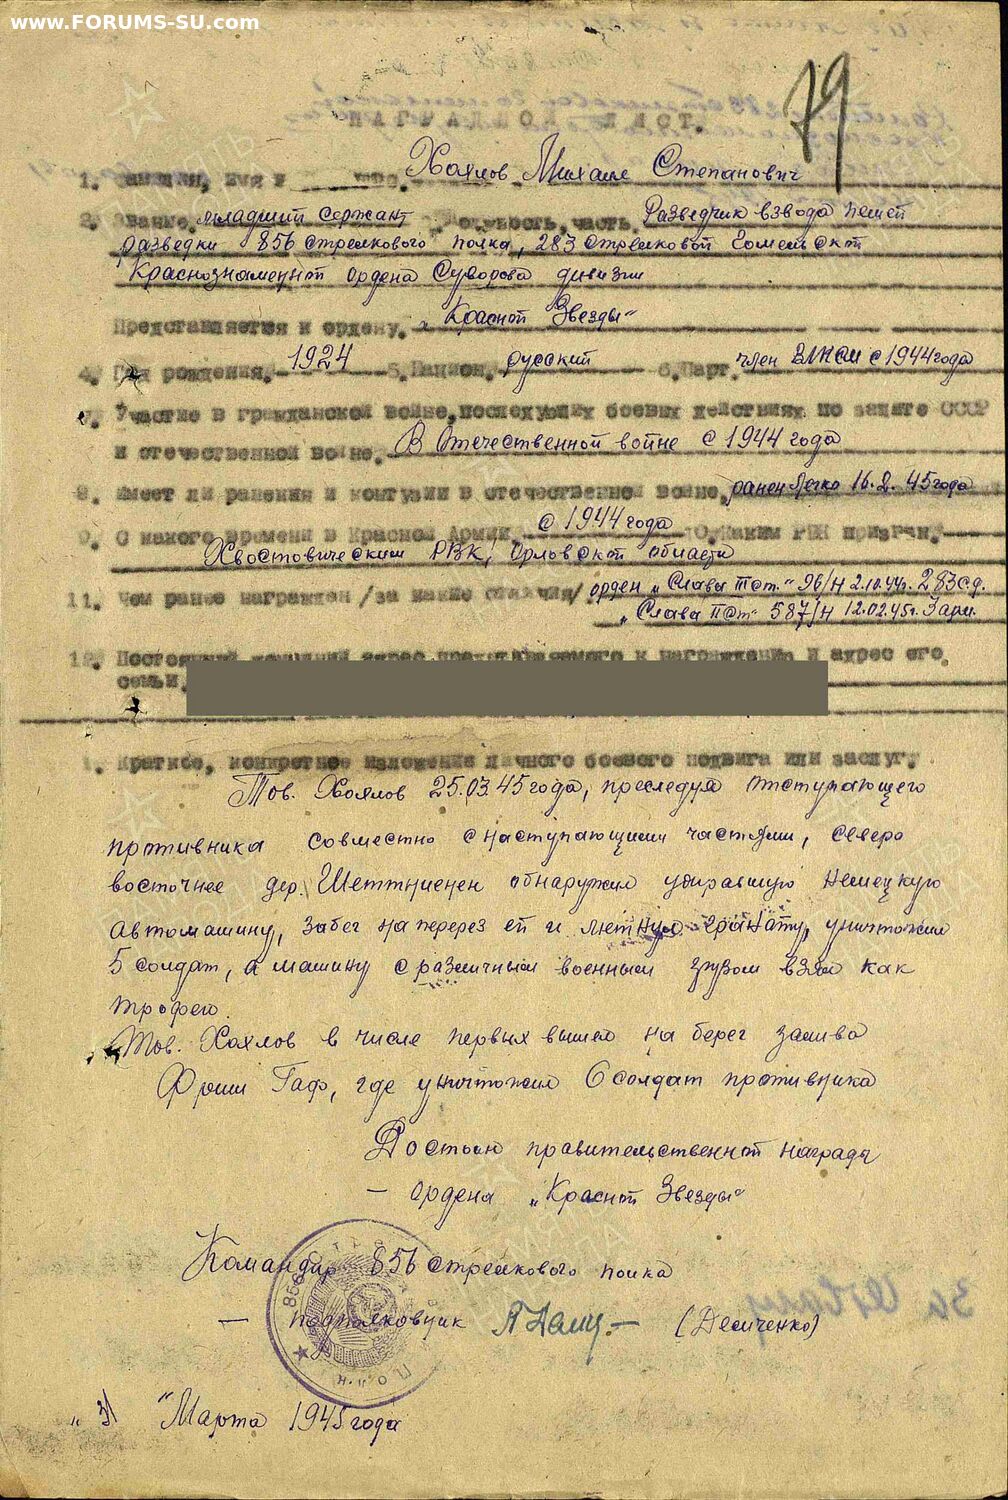 www.FORUMS-SU.com
79
НАГРАДНОЙ ЛИСТ.
1. Фамилия, имя и Хохлов Михаил Степанович
2. Звание младший сержант должность, часть Разведчик взвода пешей
разведки 856 стрелкового полка, 283 стрелковой Гомельской
Краснознаменной ордена Суворова дивизии
Представляется к ордену. „Красной Звезды“
4. Год рождения. 1924 5. Национ. русский 6. Парт. член ВЛКСМ с 1944 года
7. Участие в гражданской войне, последующих боевых действиях по защите СССР
и отечественной войне. В Отечественной войне с 1944 года
8. Имеет ли ранения и контузии в отечественной войне. ранен легко 16.2.45 года
9. С какого времени в Красной Армии с 1944 года 10. Каким РВК призван.
Хвостовическим РВК, Орловской области
11. Чем ранее награжден /за какие отличия/ орден „Слава IIIст.“ 96/н 2.10.44г. 283 с.д.
„Слава IIст“ 587/н 12.02.45г. 3 арм.
12. Постоянный домашний адрес представляемого к награждению и адрес его
семьи.
1. Краткое, конкретное изложение личного боевого подвига или заслуг.
Тов. Хохлов 25.03.45 года, преследуя отступающего
противника совместно с наступающими частями, северо
восточнее дер. Шеттниенен обнаружил удиравшую немецкую
автомашину, забег на перерез ей и метнул гранату, уничтожил
5 солдат, а машину с различным военным грузом взял как
трофей.
Тов. Хохлов в числе первых вышел на берег залива
Фриш Гаф, где уничтожил 6 солдат противника
Достоин правительственной награды
– ордена „Красной Звезды“
Командир 856 стрелкового полка
– подполковник (Демченко)
„31“ Марта 1945 года